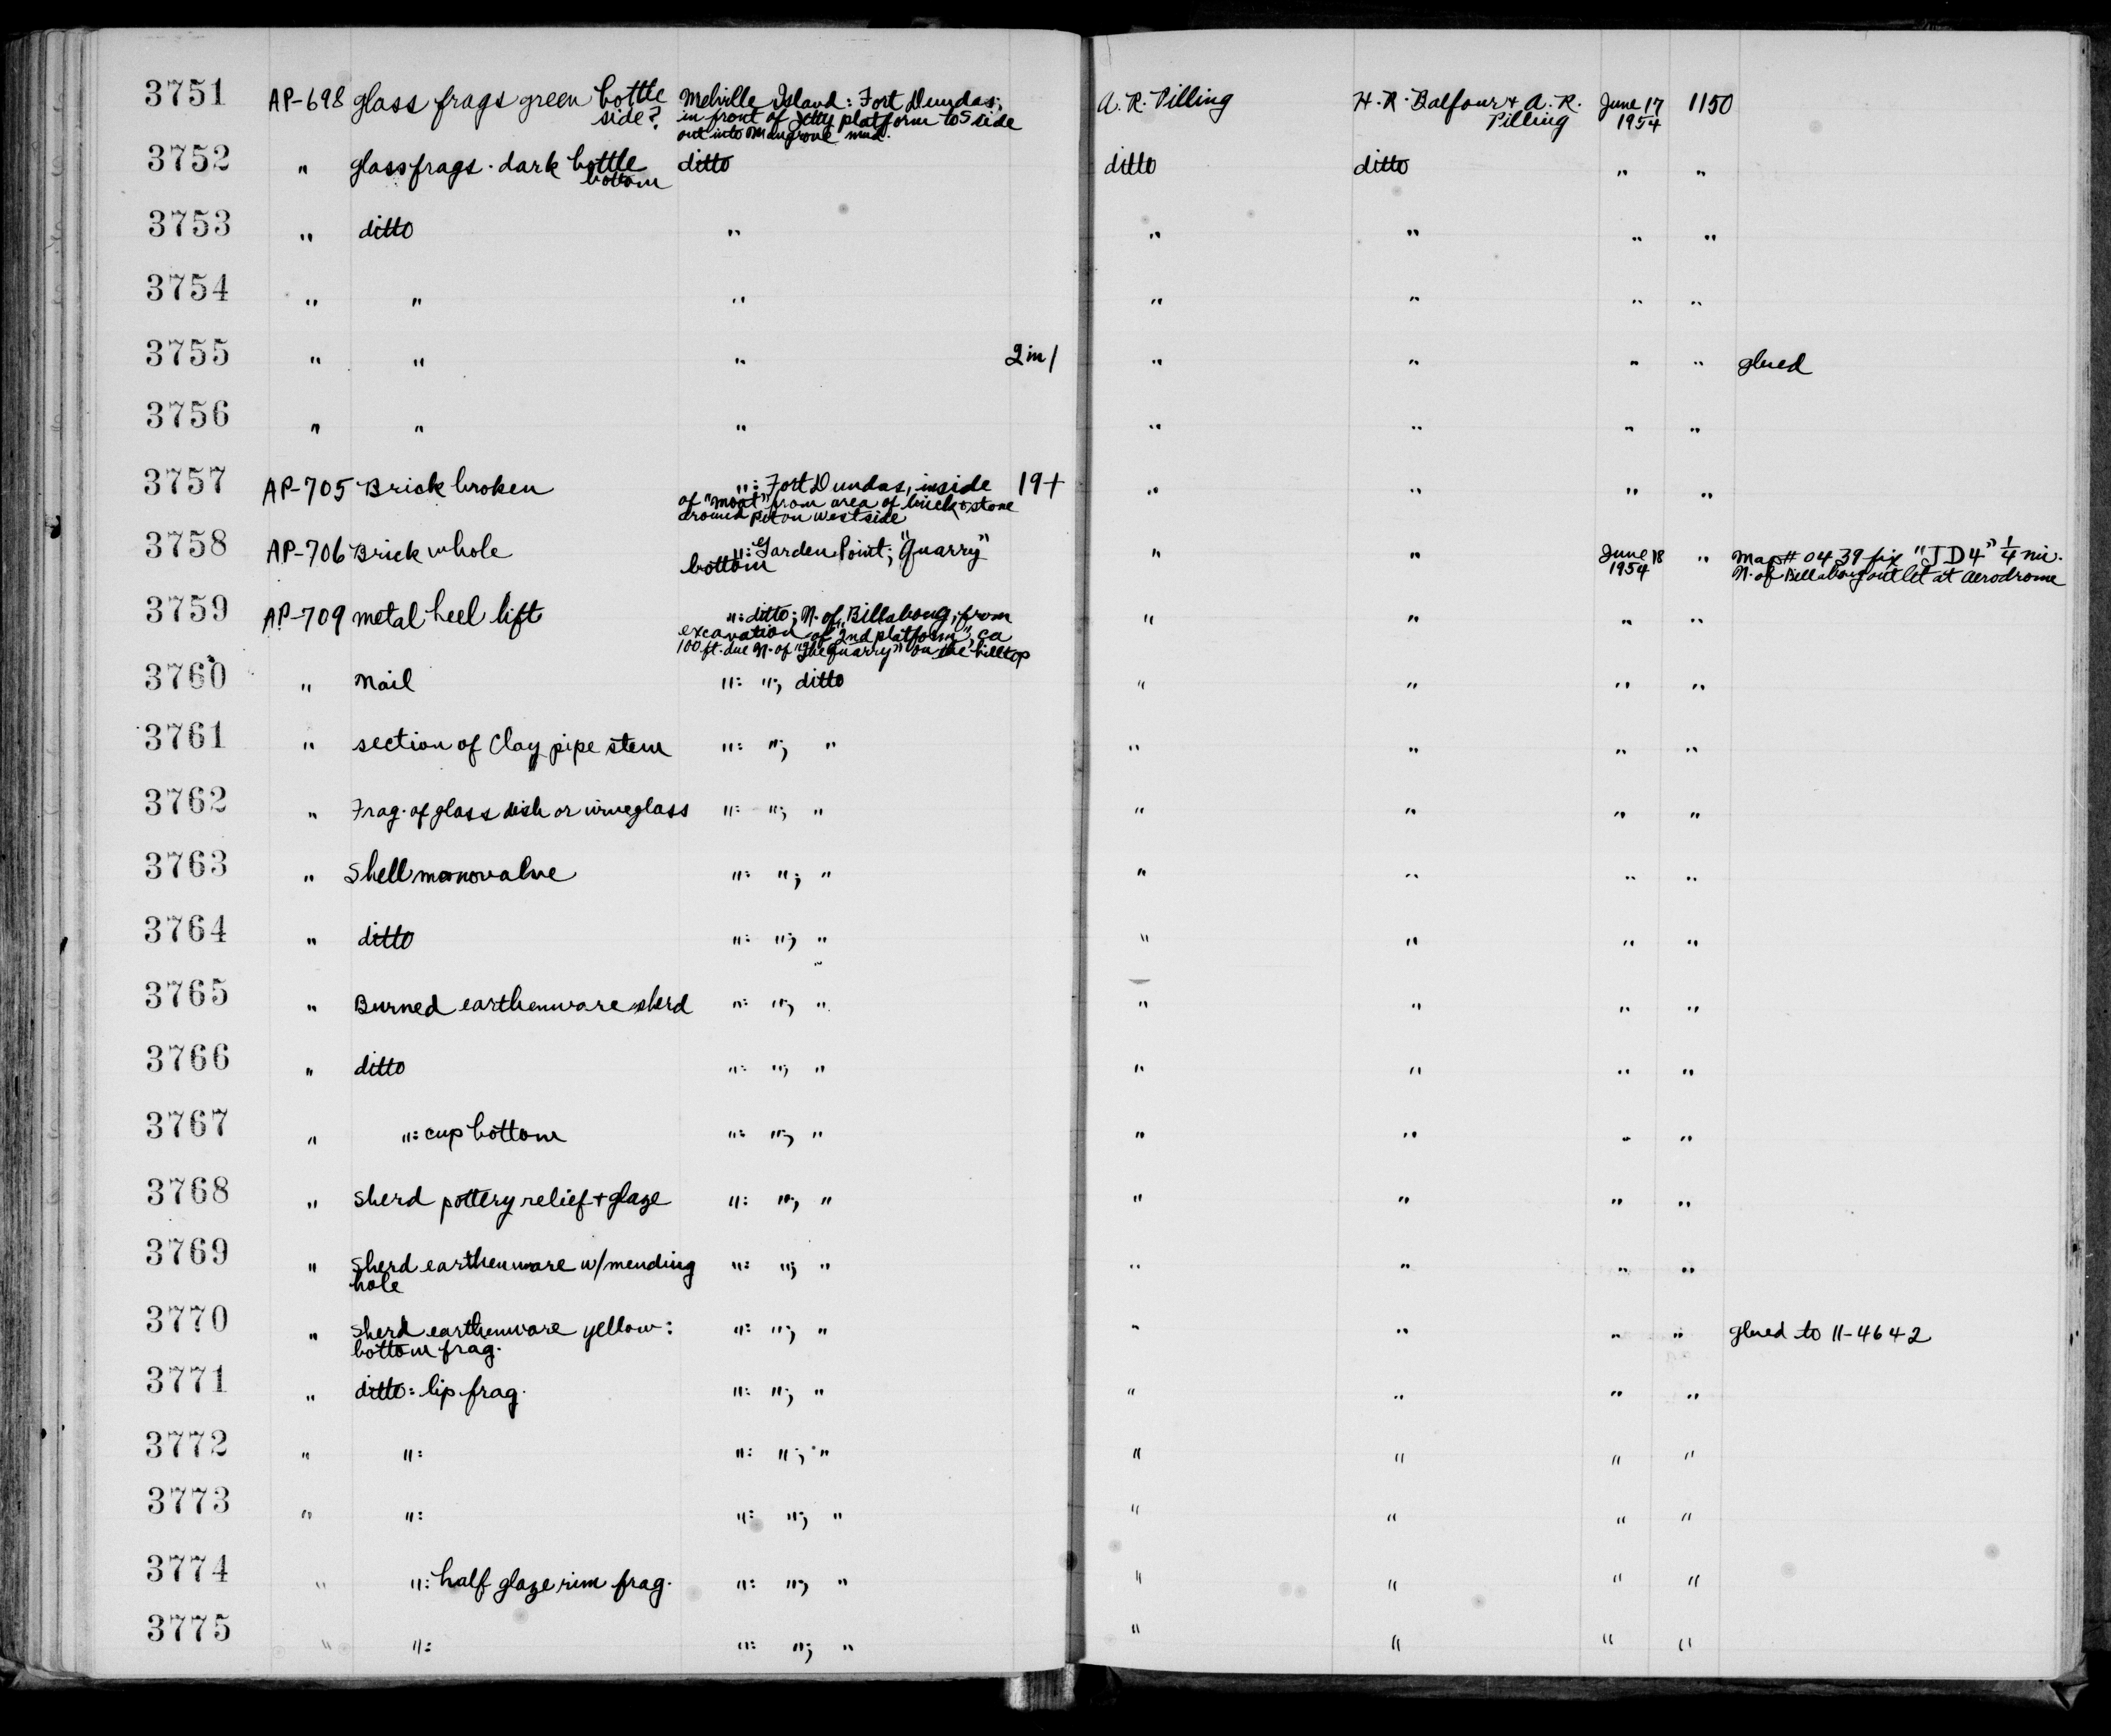 3751 AP-698 glass frags green bottle side? Melville Island: Fort Dundas; A. R. Pilling H. R. Balfour + A. R. Pilling June 17 1954 1150
in front of Jetty platform to S side
out into Mangrove mud.
3752 " glass frags. dark bottle bottom ditto ditto ditto " "
3753 " ditto " " " " "
3754 " " " " " " "
3755 " " " 2 in 1 " " " " glued
3756 " " " " " " "
3757 AP-705 Brick broken ": Fort Dundas, inside 19+ " " " "
of "moat" from area of brick & stone
around pit on west side
3758 AP-706 Brick whole ": Garden Point; "Quarry" bottom " " June 18 1954 " Map # 0439 fix "JD4" 1/4 mi.
N. of Billabong outlet at Aerodrome
3759 AP-709 metal heel lift ": ditto; N. of Billabong, from " " " "
excavation of "2nd platform", ca
100 ft. due N. of "the Quarry" on the hilltop
3760 " Nail ": "; ditto " " " "
3761 " section of Clay pipe stem ": "; " " " " "
3762 " Frag. of glass dish or wineglass ": "; " " " " "
3763 " Shell monovalve ": "; " " " " "
3764 " ditto ": "; " " " " "
3765 " Burned earthenware sherd ": "; " " " " "
3766 " ditto ": "; " " " " "
3767 " ": cup bottom ": "; " " " " "
3768 " Sherd pottery relief + glaze ": "; " " " " "
3769 " Sherd earthenware w/mending ": "; " " " " "
hole
3770 " Sherd earthenware yellow: ": "; " " " " " glued to 11-4642
bottom frag.
3771 " ditto: lip frag. ": "; " " " " "
3772 " ": ": "; " " " " "
3773 " ": ": "; " " " " "
3774 " ": half glaze rim frag. ": "; " " " " "
3775 " ": ": "; " " " " "